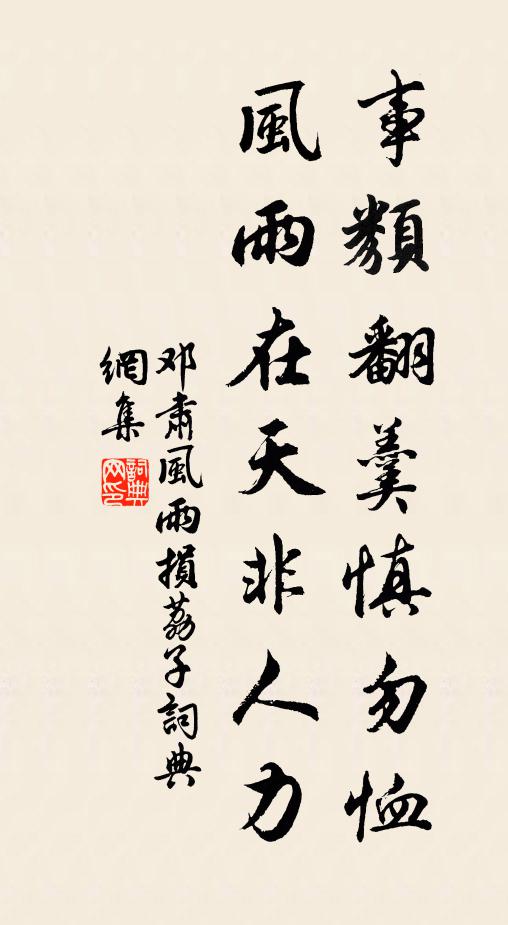 事類翻羹慎勿恤
風雨在天非人力
邓肅風雨損荔子詞典
網集
詞典网印